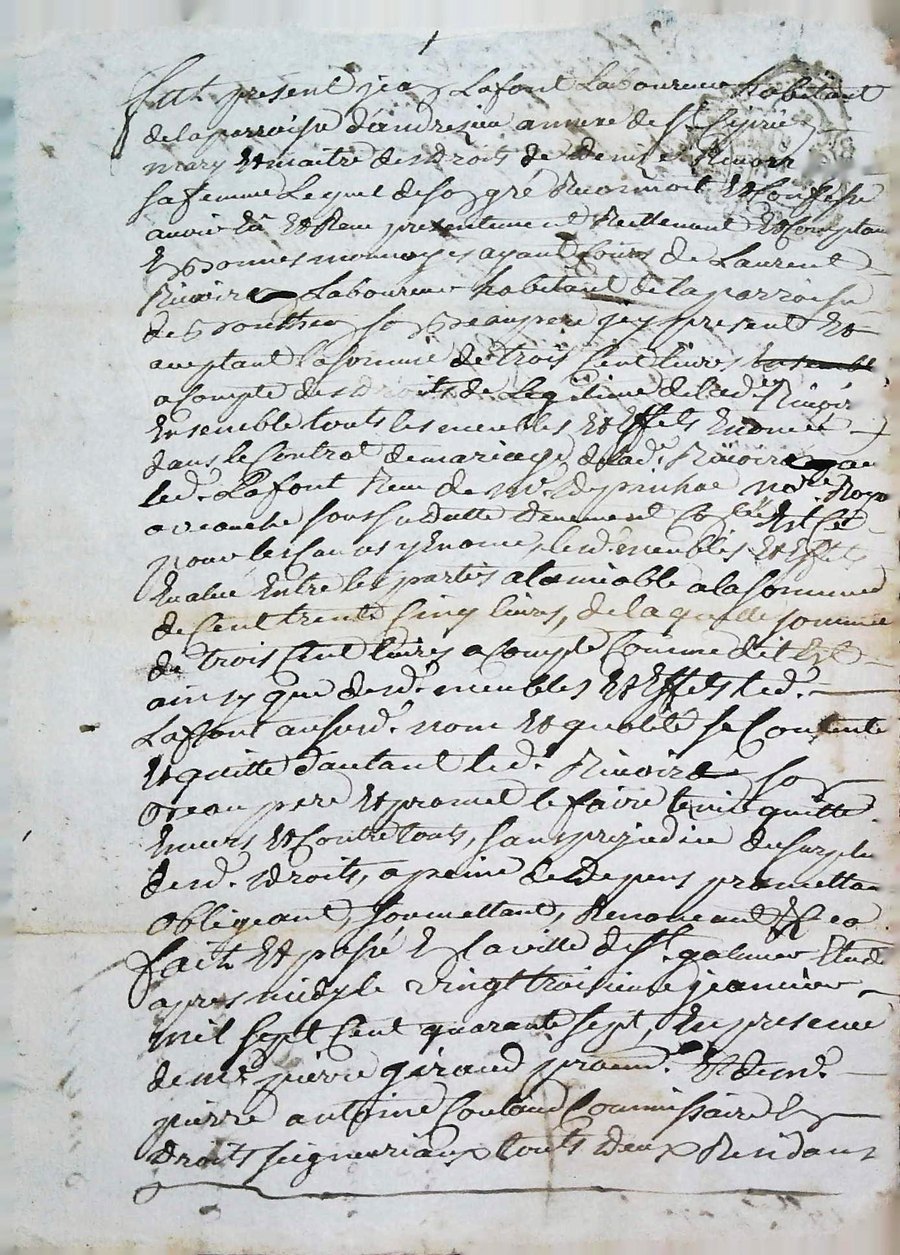 fut present jean Lafont Laboureur habitant
de la parroisse d'andrezieu annexe de St Ciprien
mary et maitre des droits de Denise Rivoire
sa femme Lequel de son gré Reconnoit et Confesse
avoir Eü et Receu presentement Reellement et Comptant
En bonnes monnoyes ayant Cours de Laurent
Rivoire Laboureur habitant de la parroisse
de Bouthéon son Beaupere icy present et
aceptant la somme de trois Cent livres
a Compte des droits de Legitime de lad. Rivoire
Ensemble touts les meubles et Effets Enoncé
dans le Contrat de mariage de lad. Rivoire
led. Lafont Receu de me. No.re Royal
sous sa datte deuement Co.lé Est Cé
pour les Causes y Enoncé, lesd. meubles et Effets
Evalué Entre les parties a lamiable a la somme
de Cent trente Cinq livres, de laquelle somme
de trois Cent livres a Compte Comme dit Est
ainsy que desd. meubles et Effets led.
Lafont aususd. nom et qualité se Contente
et quitte d'autant led. Rivoire son
Beau pere et promet le faire tenir quitte
Envers et Contre touts, sans prejudice du surplus
desd. droits, a peine de Depens promettant
obligeant, soumettant, Renonceant &ca
fait et passé En la ville de St. galmier Etude
apres midy le vingt troisieme jeanvier
mil sept Cent quarante sept, En presence
de me pierre giraud procur. et de me.
pierre antoine Coulaud Commissaire En
droits seigneuriaux touts deux Residans